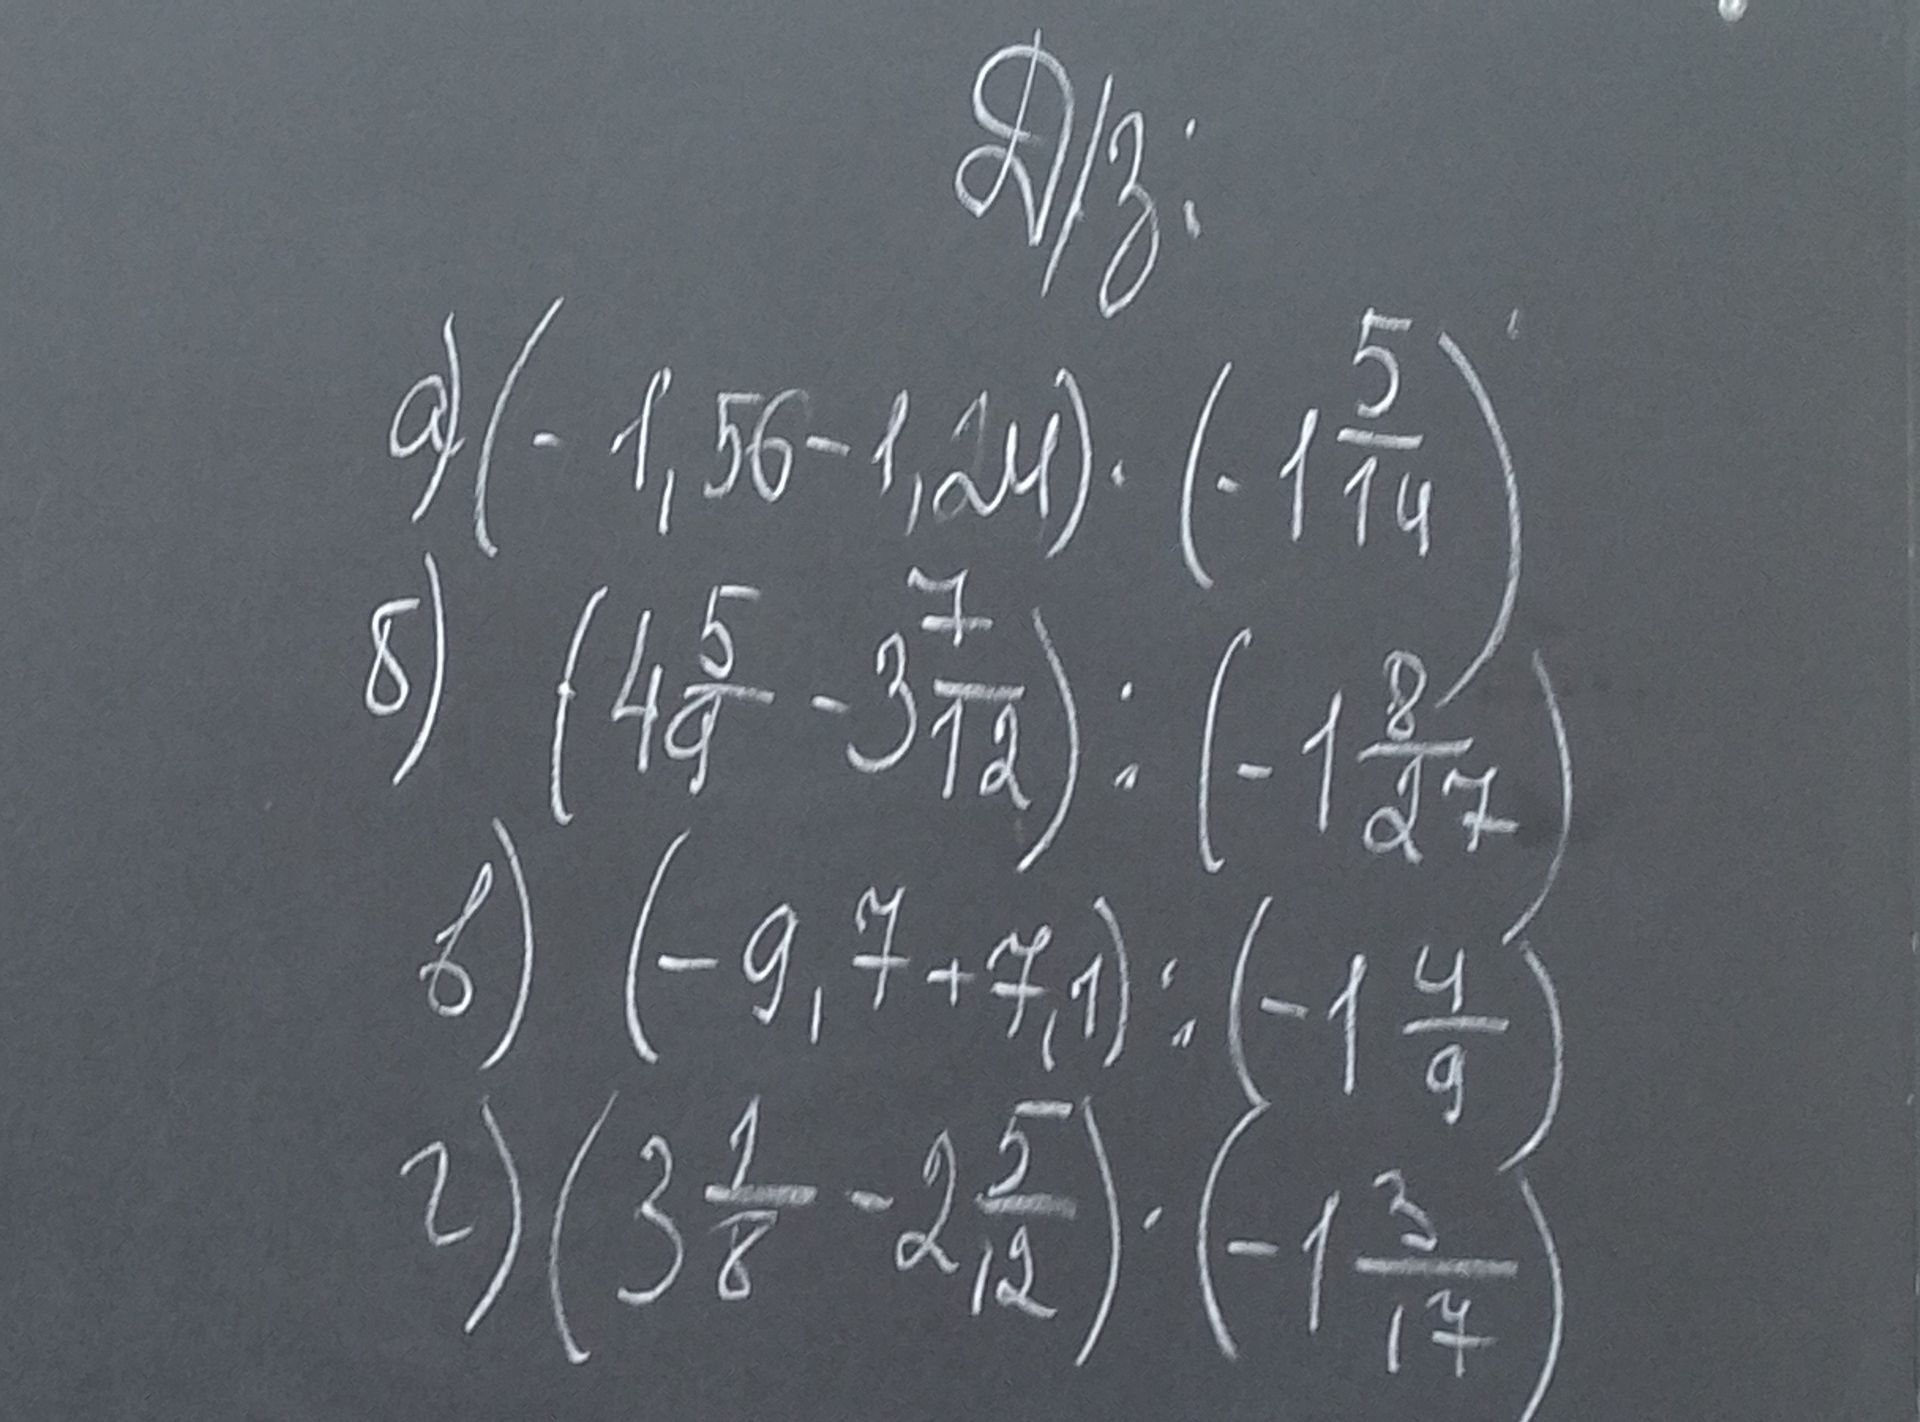 Д/з:
а) (- 1,56 - 1,24) · (- 1 5/14)
б) (4 5/9 - 3 7/12) : (- 1 8/27)
в) (- 9,7 + 7,1) : (- 1 4/9)
г) (3 1/8 - 2 5/12) · (- 1 3/17)